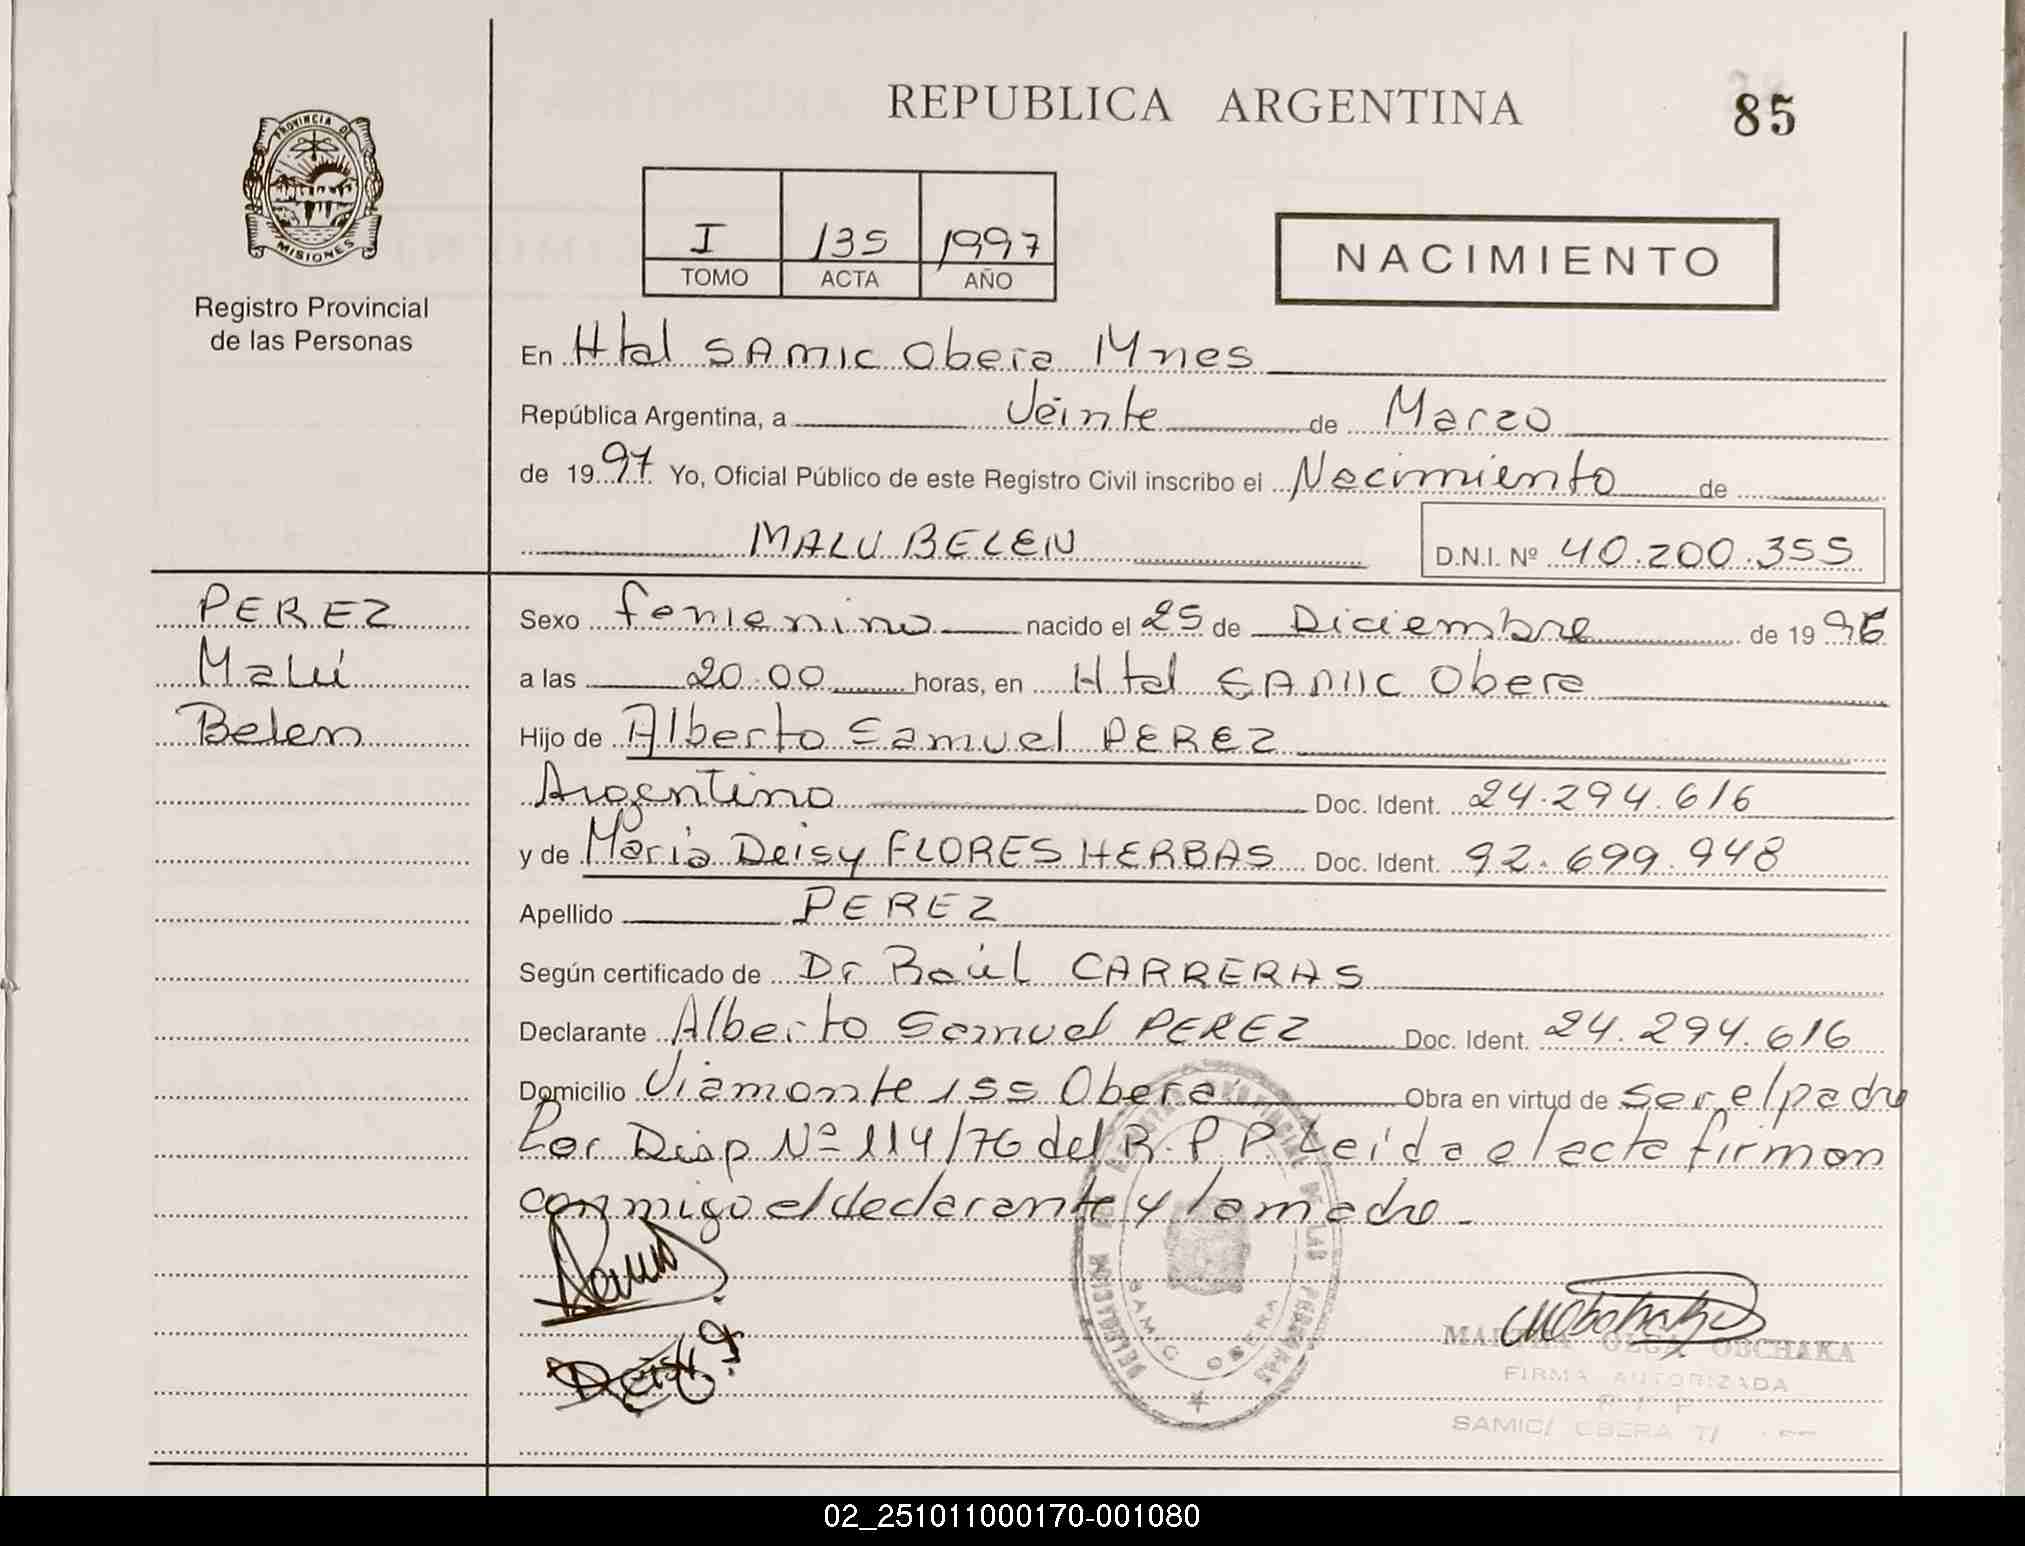 REPUBLICA ARGENTINA
85
PROVINCIA DE
MISIONES
Registro Provincial
de las Personas
I 135 1997
TOMO ACTA AÑO
NACIMIENTO
En Htal SAMIC Obera Mnes
República Argentina, a Veinte de Marzo
de 1997 Yo, Oficial Público de este Registro Civil inscribo el Nacimiento de
MALU BELEN D.N.I. Nº 40.200.355
PEREZ
Malú
Belen
Sexo femenino nacido el 25 de Diciembre de 1996
a las 20.00 horas, en Htal SAMIC Obera
Hijo de Alberto Samuel PEREZ
Argentino Doc. Ident. 24.294.616
y de Maria Deisy FLORES HERBAS Doc. Ident. 92.699.948
Apellido PEREZ
Según certificado de Dr Raúl CARRERAS
Declarante Alberto Samuel PEREZ Doc. Ident. 24.294.616
Domicilio Viamonte 155 Obera Obra en virtud de ser el padre
Por Disp Nº 114/76 del R.P.P. Leida el acta firman
conmigo el declarante y la madre.
DELEGACION DEL REGISTRO PROVINCIAL DE LAS PERSONAS
SAMIC OBERA
MARTHA OLGA OBCHAKA
FIRMA AUTORIZADA
R P P
SAMIC/ OBERA
02_251011000170-001080